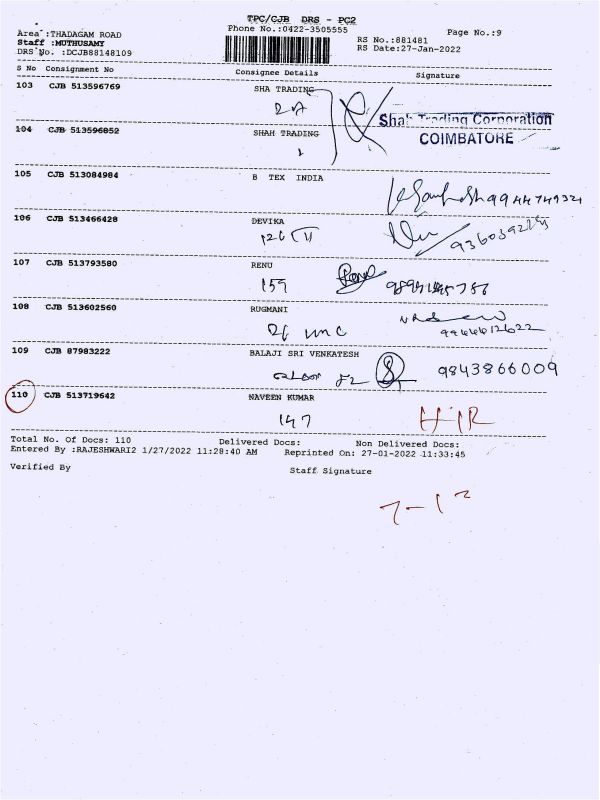 TPC/CJB DRS - PC2
Area :THADAGAM ROAD
Phone No.:0422-3505555
Page No.:9
Staff :MUTHUSAMY
RS No.:881481
DRS No. :DCJB88148109
RS Date:27-Jan-2022
S No Consignment No Consignee Details Signature
103 CJB 513596769 SHA TRADING
Shah Trading Corporation
104 CJB 513596852 SHAH TRADING
COIMBATORE
105 CJB 513084984 B TEX INDIA
106 CJB 513466428 DEVIKA
107 CJB 513793580 RENU
159
108 CJB 513602560 RUGMANI
109 CJB 87983222 BALAJI SRI VENKATESH
9843866009
110 CJB 513719642 NAVEEN KUMAR
147
Total No. Of Docs: 110 Delivered Docs: Non Delivered Docs:
Entered By :RAJESHWARI2 1/27/2022 11:28:40 AM Reprinted On: 27-01-2022 11:33:45
Verified By Staff Signature